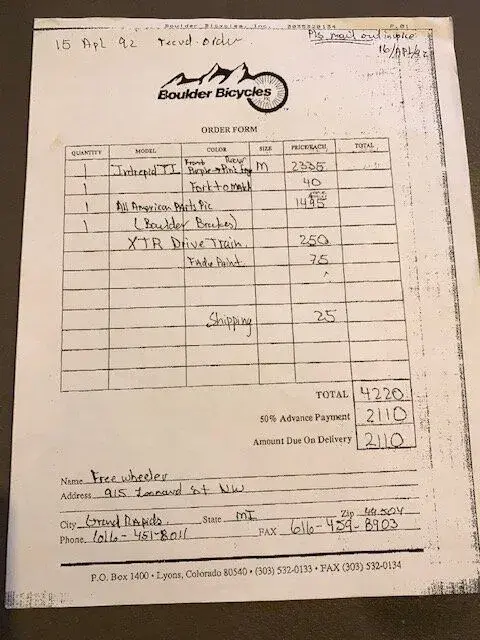 Boulder Bicycles, Inc. 3035320134 P.01
15 Apl 92 recvd. order
Pls mail out invoice
16/Apl/92
Boulder Bicycles
ORDER FORM
QUANTITY MODEL COLOR SIZE PRICE/EACH TOTAL
Front Rear
1 Intrepid TI Purple → Pink M 2335
1 Fork to Match 40
1 All American Parts Pic 1495
1 (Boulder Brakes)
XTR Drive Train 250
Fade Paint 75
Shipping 25
TOTAL 4220
50% Advance Payment 2110
Amount Due On Delivery 2110
Name Freewheeler
Address 915 Leonard St NW
City Grand Rapids State MI Zip 49504
Phone 616-451-8011 FAX 616-459-8903
P.O. Box 1400 • Lyons, Colorado 80540 • (303) 532-0133 • FAX (303) 532-0134